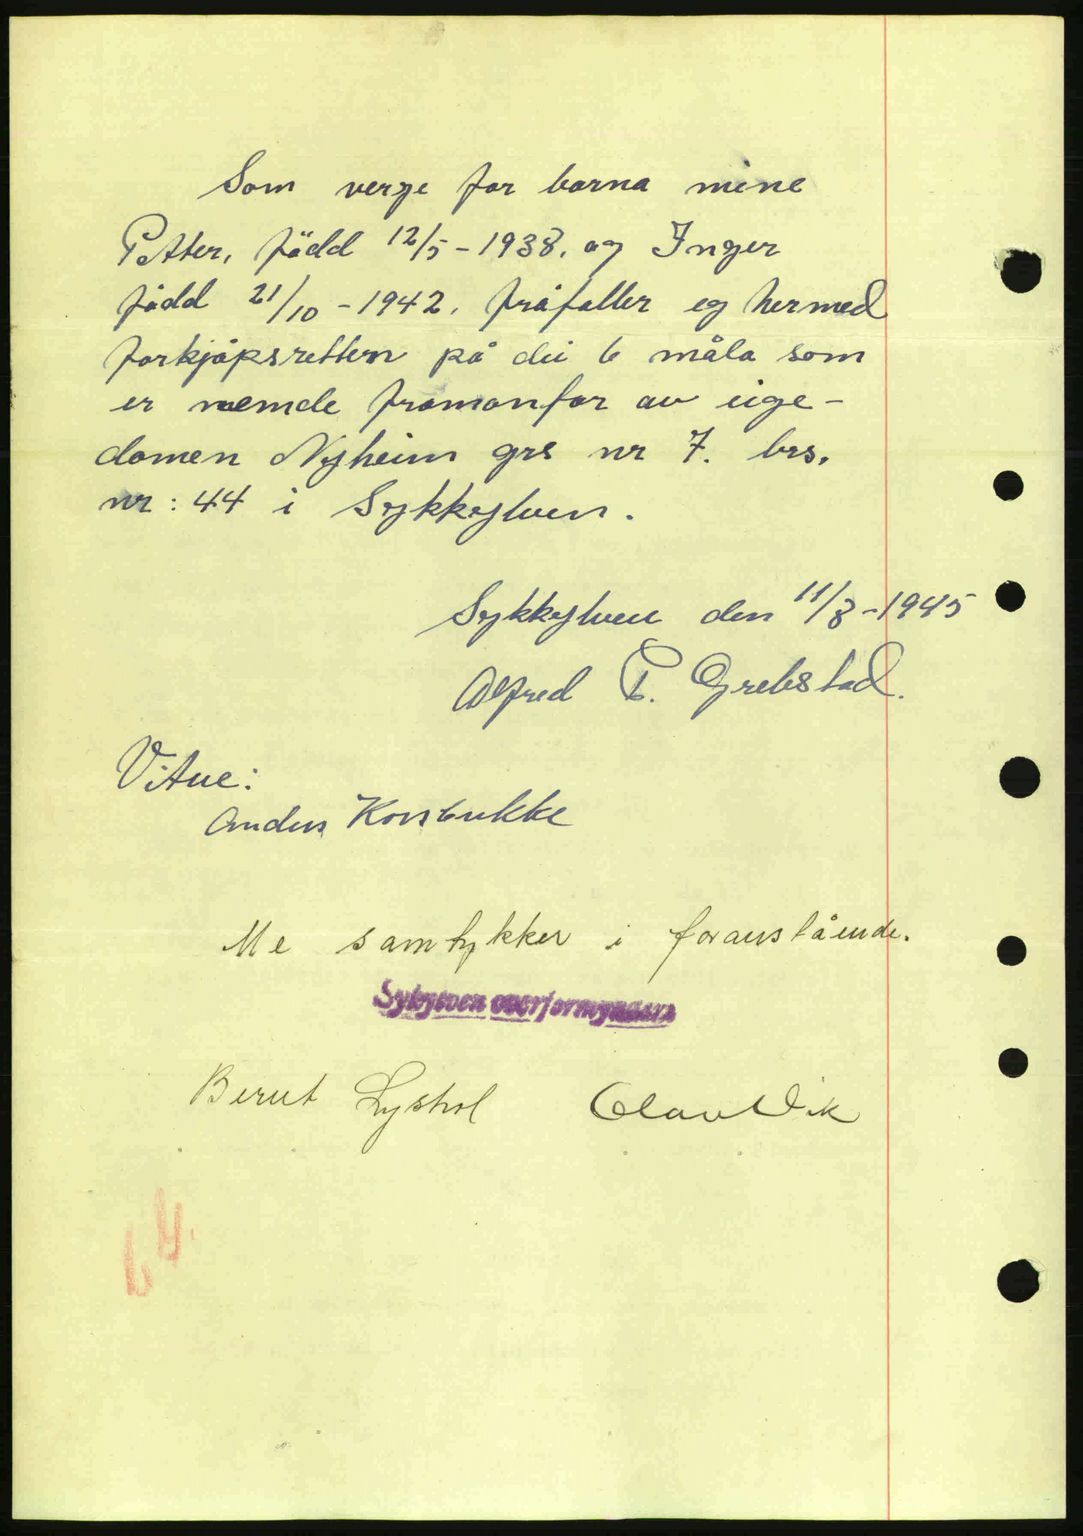 Som verge for borna mine
Petter, född 12/5-1938, og Inger
född 21/10-1942, fråfaller eg hermed
forkjøpsretten på dei 6 måla som
er nemde framanfor av eige-
domen Nyheim grs nr 7. brs.
nr: 44 i Sykkylven.
Sykkylven den 11/8-1945
Alfred P. Grebstad.
Vitne:
Anders Korsbrekke
Me samtykker i foranstående.
Sykylven overformynderi
Bernt Lyshol Olav Vik